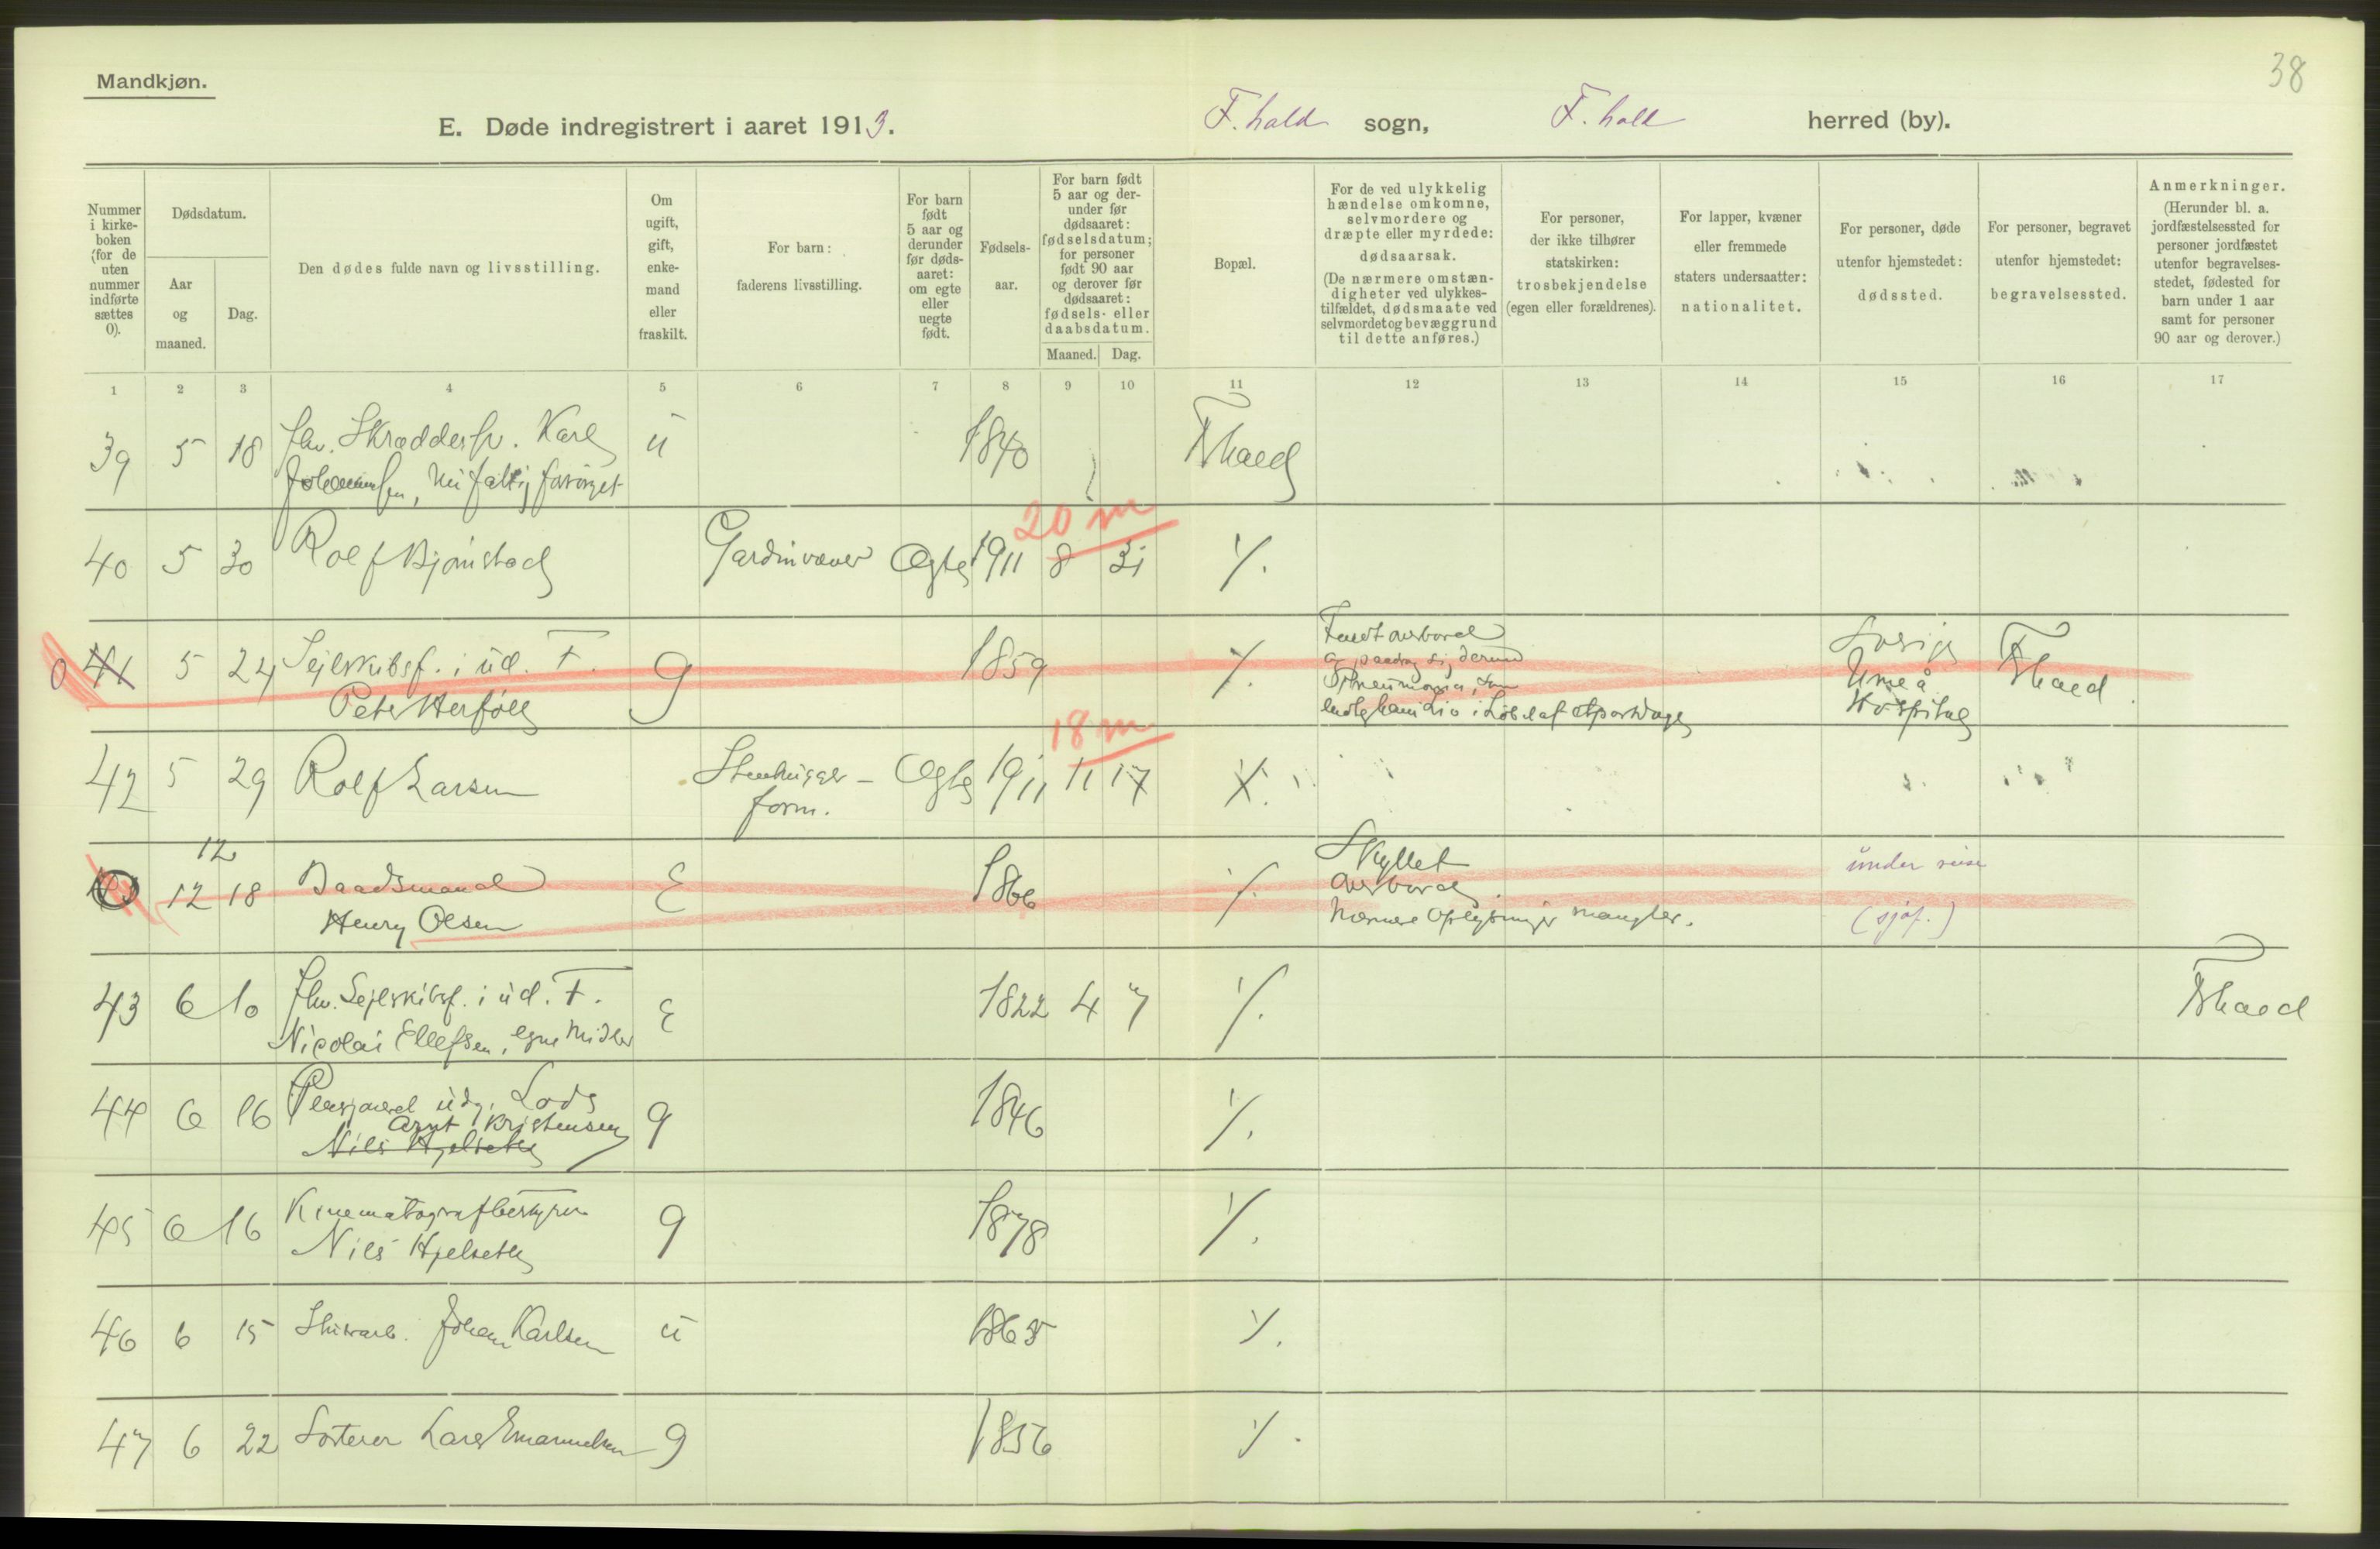 38
Mandkjøn.
E. Døde indregistrert i aaret 1913.
F.hald sogn, F.hald herred (by).
Nummer i kirkeboken (for de uten nummer indførte sættes 0).
Dødsdatum.
Aar og maaned.
Dag.
Den dødes fulde navn og livsstilling.
Om ugift, gift, enkemand eller fraskilt.
For barn: faderens livsstilling.
For barn født 5 aar og derunder før dødsaaret: om egte eller uegte født.
Fødselsaar.
For barn født 5 aar og derunder før dødsaaret: fødselsdatum; for personer født 90 aar og derover før dødsaaret: fødsels- eller daabsdatum.
Maaned. Dag.
Bopæl.
For de ved ulykkelig hændelse omkomne, selvmordere og dræpte eller myrdede: dødsaarsak. (De nærmere omstændigheter ved ulykkestilfældet, dødsmaate ved selvmordet og bevæggrund til dette anføres.)
For personer, der ikke tilhører statskirken: trosbekjendelse (egen eller forældrenes).
For lapper, kvæner eller fremmede staters undersaatter: nationalitet.
For personer, døde utenfor hjemstedet: dødssted.
For personer, begravet utenfor hjemstedet: begravelsessted.
Anmerkninger. (Herunder bl. a. jordfæstelsessted for personer jordfæstet utenfor begravelsesstedet, fødested for barn under 1 aar samt for personer 90 aar og derover.)
1 2 3 4 5 6 7 8 9 10 11 12 13 14 15 16 17
39 5 18 fhv. Skræddersv. Karl u 1840 Fhald
Johannsen, nu fattigforsørget
20 m
40 5 30 Rolf Bjørnstad Gardinvæver Ægte 1911 8 31 ٪
0 41 5 24 Sejlskibsf. i ud. F. g 1859 ٪ Faldt overbord Sverige Fhald
Peter Herføll og paadrog sig derved Umeå
Pneumonia, som Hospital
endte hans Liv i Løbet af et par Dage
18 m
42 5 29 Rolf Larsen Stenhugger- Ægte 1911 11 17 ٪
form.
12
43 12 18 Baadsmand E 1866 ٪ Skyllet under reise
Henry Olsen overbord.
Nærmere Oplysninger mangler. (sjøf.)
43 6 10 fhv. Sejlskibsf. i ud. F. E 1822 4 7 ٪ Fhald
Nicolai Ellefsen, egne Midler
44 6 16 Pensioneret udg. Lods g 1846 ٪
Arnt Kristensen
Nils Hjelseth
45 6 16 Kinematografbestyrer g 1878 ٪
Nils Hjelseth
46 6 15 Johan Karlsen u 1865 ٪
47 6 22 Sorterer Lars Emanuelsen g 1856 ٪